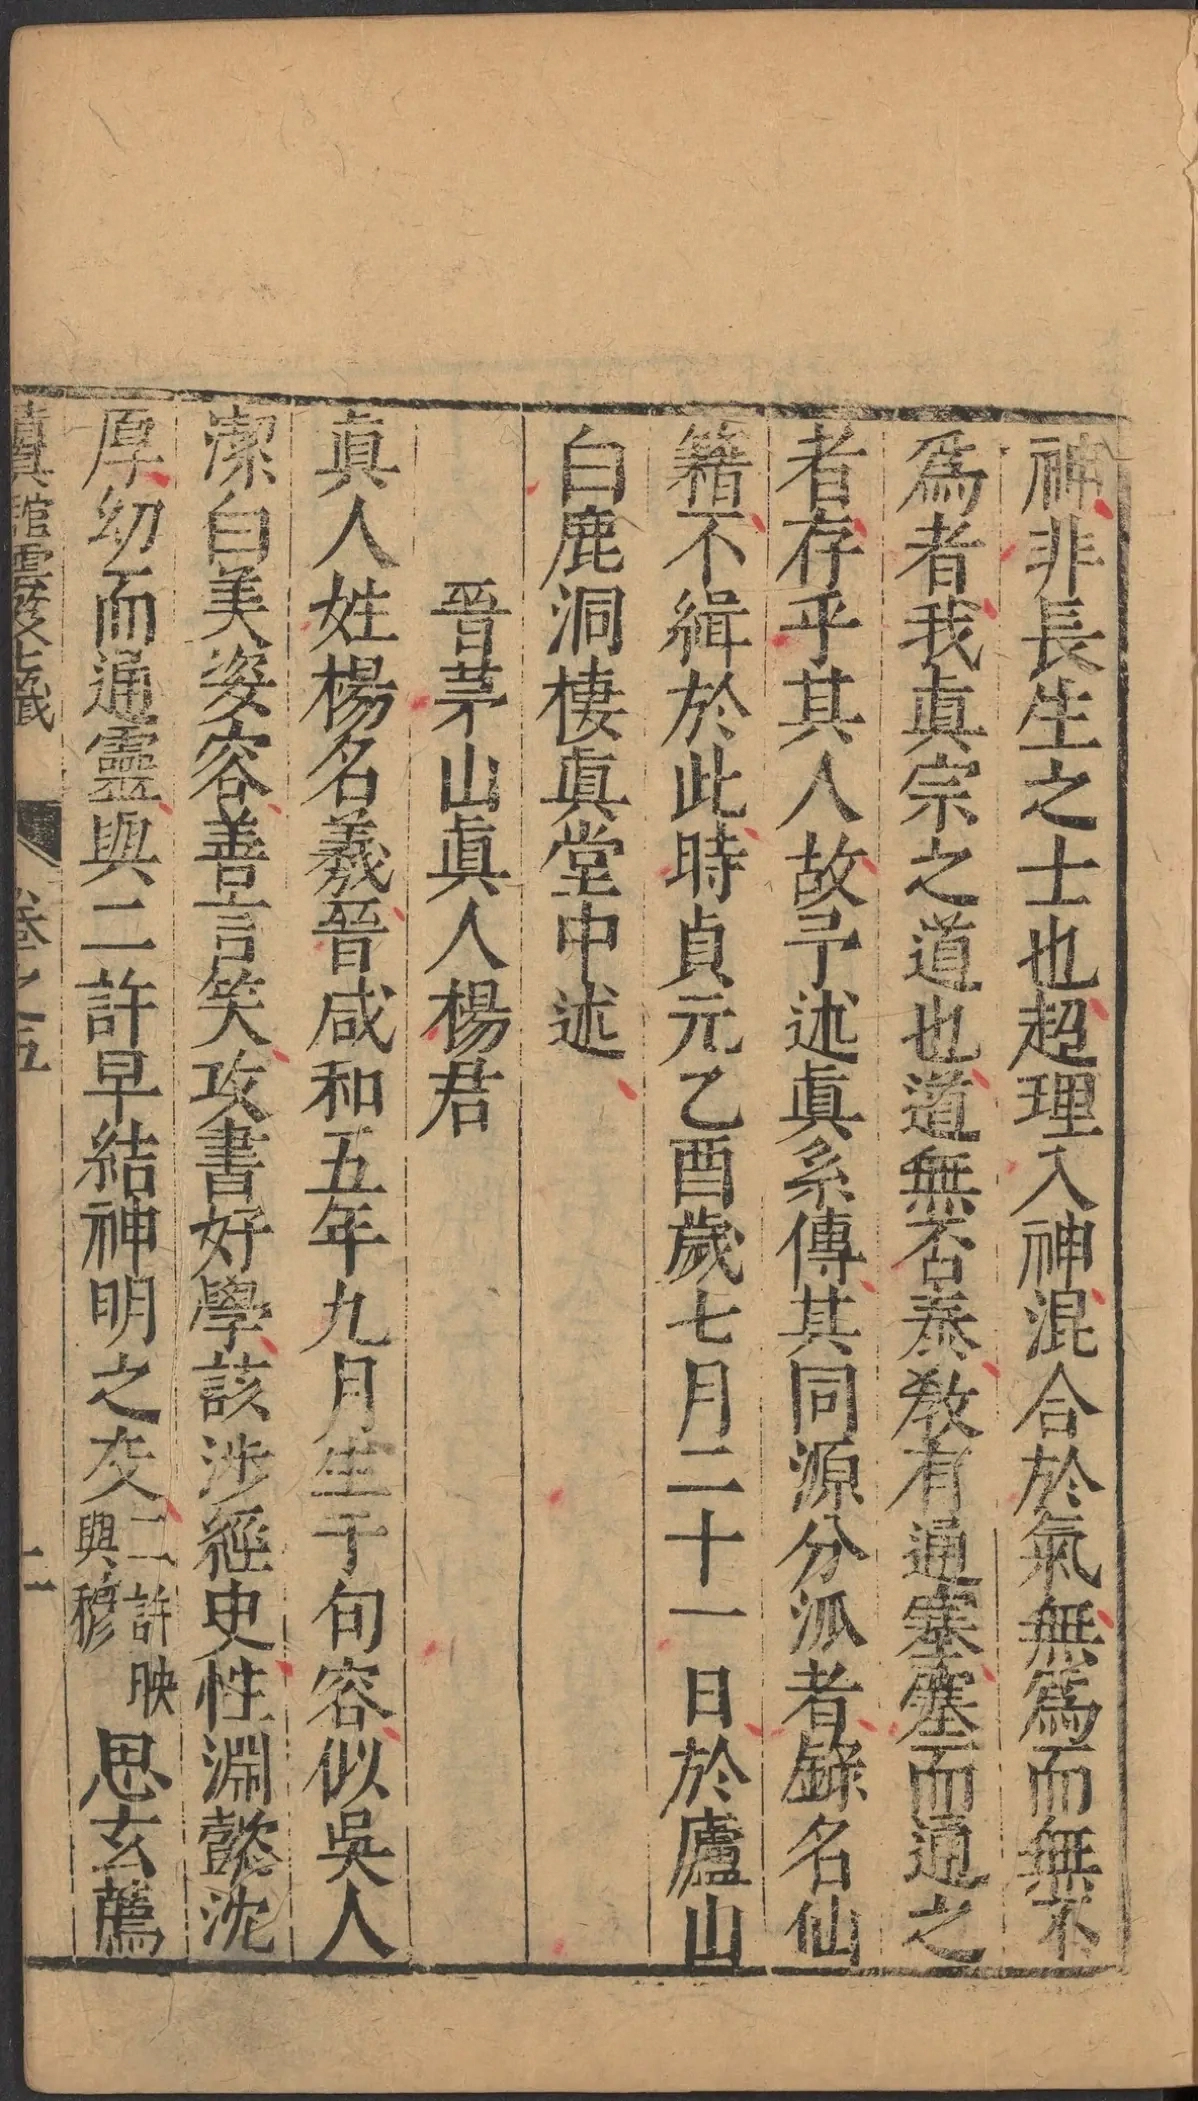 神非長生之士也超理入神混合於氣無爲而無不
爲者我眞宗之道也道無否泰敎有通塞塞而通之
者存乎其人故予述眞系傳其同源分派者錄名仙
籍不緝於此時貞元乙酉歲七月二十一日於廬山
白鹿洞棲眞堂中述
晉茅山眞人楊君
眞人姓楊名羲晉咸和五年九月生于句容似吳人
潔白美姿容善言笑攻書好學該涉經史性淵懿沈
厚幼而通靈與二許早結神明之交二許映與穆思玄薦
眞館雲笈七籤 卷之五 二